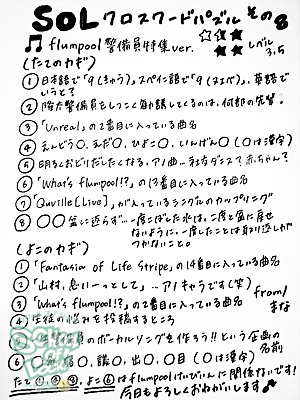 SOL クロスワードパズル その8
♫ flumpool 警備員特集ver. ☆☆★★★ レベル3.5
(たてのカギ)
① 日本語で「9(きゅう)」、スペイン語で「9(ヌエベ)」、英語でいうと?
② 隆太警備員をしつこく勧誘してくるのは、何部の先輩?
③ 「Unreal」の2番目に入っている曲名
④ えんどう〇、えだ〇、ひよこ〇、いんげん〇 (〇は漢字)
⑤ 明るくおどりだしたくなる、アノ曲ー 赤ちゃん?
⑥ 「What's flumpool!?」の13番目に入っている曲名
⑦ 「Quville[Live]」が入っているシングルのカップリング
⑧ 〇〇盆に返らず…一度こぼした水は、二度と盆に戻せないように、一度したことは取り返しがつかないこと。
(よこのカギ)
① 「Fantasia of Life Stripe」の14番目に入っている曲名
② 「山村、息いーっとして」…アノキョうだい(笑)
③ 「What's flumpool!?」の2番目に入っている曲名
from まな
④ 生徒の悩みを投稿するところ
⑤ 警備員のボーカルソングを作ろう!!という企画の名前
⑥ 〇、宿〇、議〇、出〇、〇目 (〇は漢字)
たて①、④、⑧、よこ⑥はflumpoolけいびいんに関係ないです!
今日もよろしくおねがいします♪